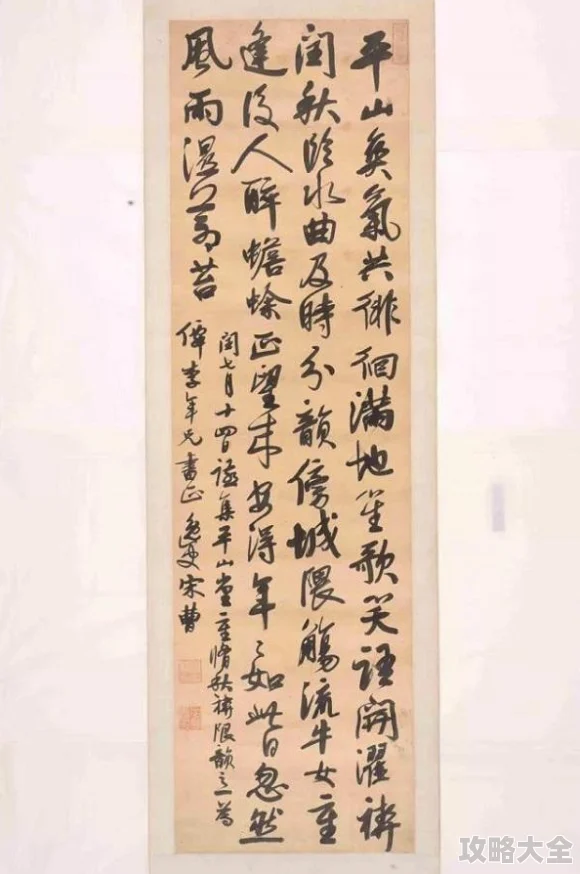 平山爽氣共徘徊滿地笙歌笑語開濯禊
閏秋臨水曲及時分韻傍城隈觴流牛女重
逢後人醉蟾蜍正望來安得年〻如此日忽然
風雨濕蒼苔
閏七月十四日集平山堂重脩秋禊限韻之一為
李年兄書正 逸叟宋曹
攻略大全